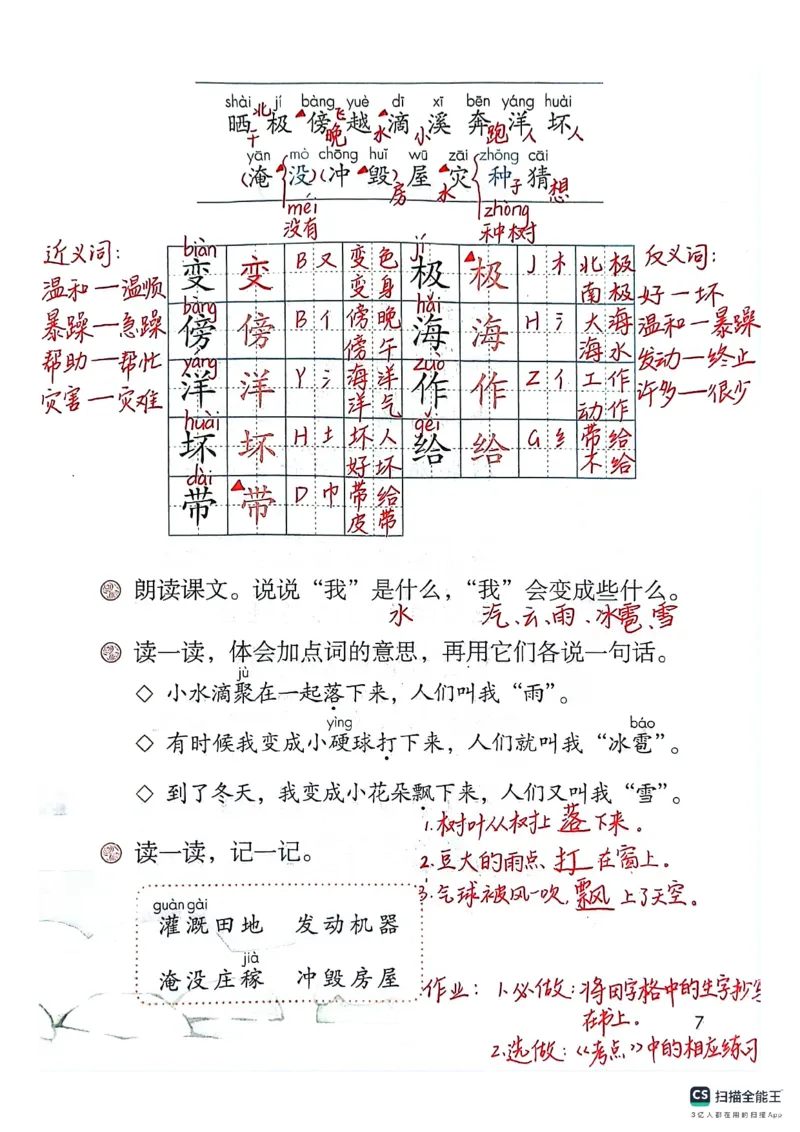 shài jí bàng yuè dī xī bēn yáng huài
晒 极 傍 越 滴 溪 奔 洋 坏
干 北 晚 飞 水 小 跑 人 人
yān mò chōng huǐ wū zāi zhǒng cāi
(淹 没)(冲 毁) 屋 灾 种 猜
房 水 子 想
méi zhòng
没有 种树
近义词:
温和一温顺
暴躁一急躁
帮助一帮忙
灾害一灾难
biàn jí
变 变 B 又 变色 变身 极 极 J 木 北极 南极
bàng hǎi
傍 傍 B 亻 傍晚 傍午 海 海 H 氵 大海 海水
yáng zuò
洋 洋 Y 氵 海洋 洋气 作 作 Z 亻 工作 动作
huài gěi
坏 坏 H 土 坏人 好坏 给 给 G 纟 带给 不给
dài
带 带 D 巾 带给 皮带
反义词:
好一坏
温和一暴躁
发动一终止
许多一很少
朗读课文。说说“我”是什么,“我”会变成些什么。
水 汽、云、雨、冰雹、雪
读一读,体会加点词的意思,再用它们各说一句话。
jù
◇ 小水滴聚在一起落下来,人们叫我“雨”。
yìng báo
◇ 有时候我变成小硬球打下来,人们就叫我“冰雹”。
◇ 到了冬天,我变成小花朵飘下来,人们又叫我“雪”。
1.树叶从树上落下来。
2.豆大的雨点打在窗上。
3.气球被风一吹,飘上了天空。
读一读,记一记。
guàn gài
灌溉田地 发动机器
jià
淹没庄稼 冲毁房屋
作业:1.必做:将田字格中的生字抄写
在书上。
2.选做:《考点》中的相应练习
7
CS 扫描全能王
3亿人都在用的扫描App